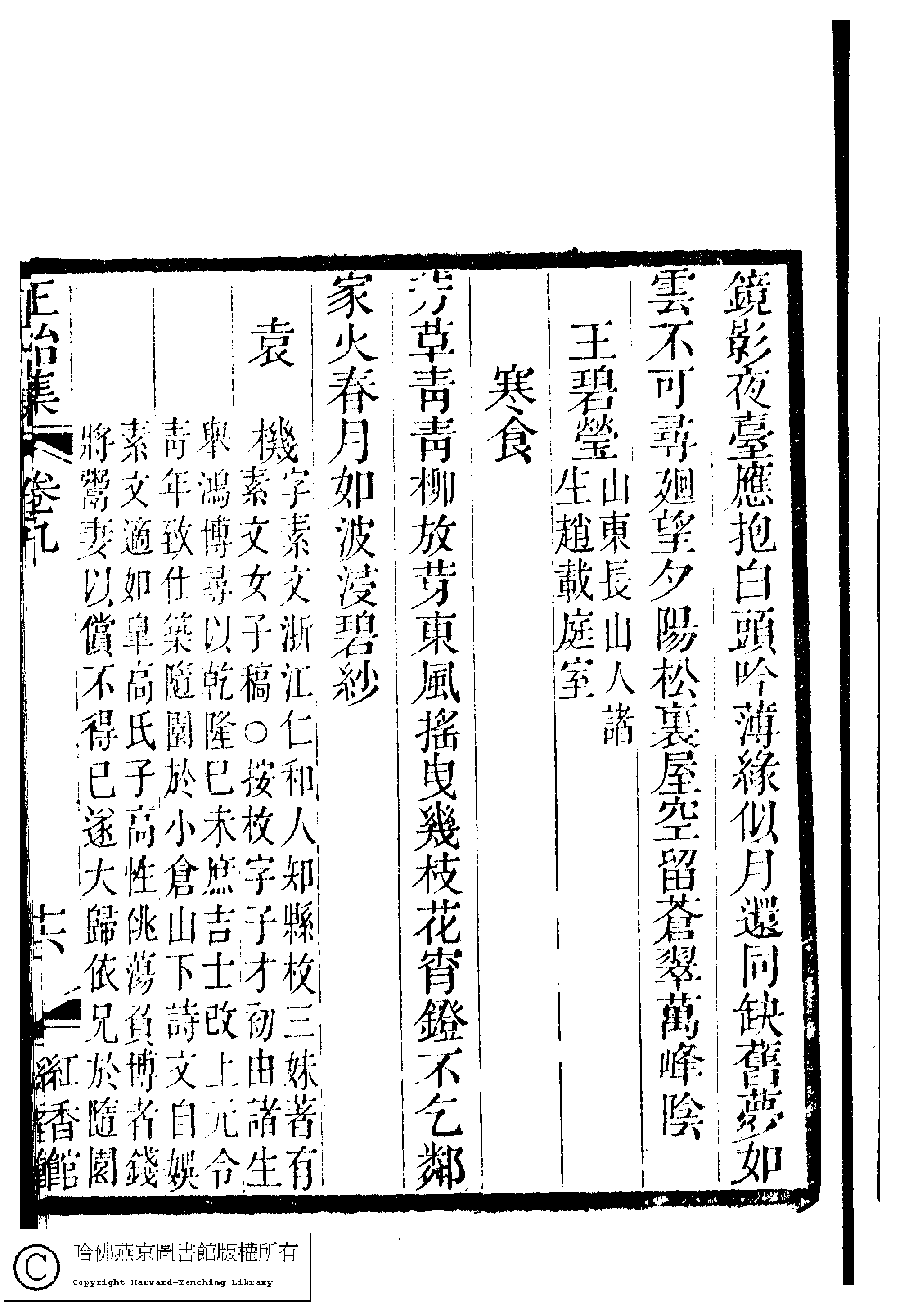 鏡影夜臺應抱白頭吟薄緣似月還同缺舊夢如
雲不可尋廻望夕陽松裏屋空留蒼翠萬峰陰
王碧瑩山東長山人諸
生趙載庭室
寒食
芳草靑靑柳放芽東風搖曳幾枝花宵鐙不乞鄰
家火春月如波浸碧紗
袁機字素文浙江仁和人知縣枚三妹著有
素文女子稿○按枚字子才初由諸生
舉鴻博尋以乾隆巳未庶吉士改上元令
靑年致仕築隨園於小倉山下詩文自娛
素文適如臯高氏子高性佻蕩負博者錢
將鬻妻以償不得已遂大歸依兄於隨園
正始集
卷九
十六
紅香館
哈佛燕京圖書館版權所有
Copyright Harvard-Yenching Library